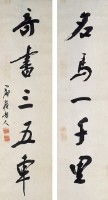 名馬一千里
奇書三五車